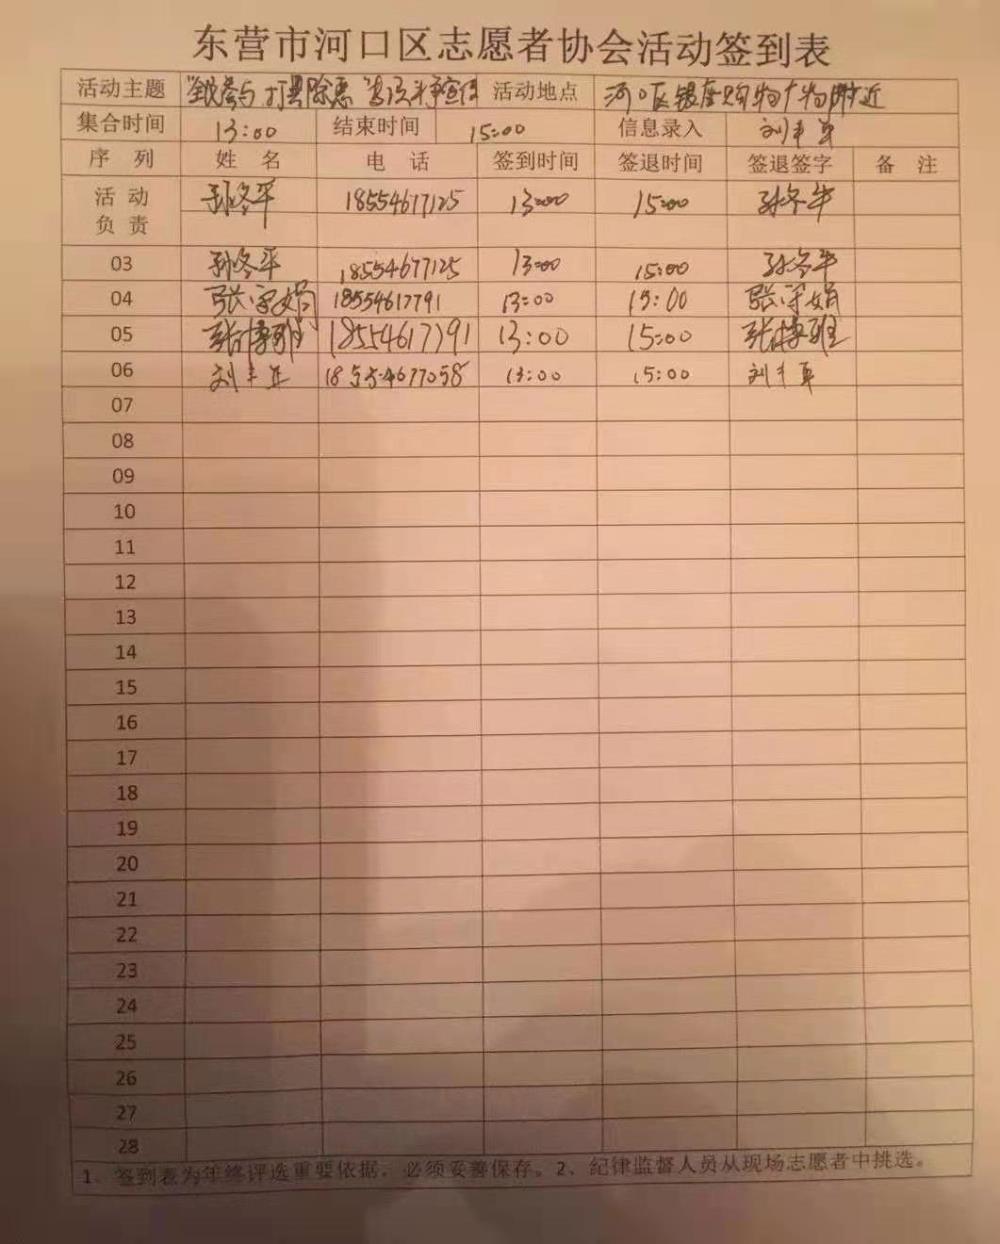 东营市河口区志愿者协会活动签到表
活动主题 全民参与 打黑除恶 专项斗争宣传 活动地点 河口区银座购物广物附近
集合时间 13:00 结束时间 15:00 信息录入 刘丰
序 列 姓 名 电 话 签到时间 签退时间 签退签字 备 注
活 动 孙冬平 18554617125 13:00 15:00 孙冬平
负 责
03 孙冬平 18554677125 13:00 15:00 孙冬平
04 张守娟 18554617791 13:00 15:00 张守娟
05 张博雅 18554617791 13:00 15:00 张博雅
06 刘丰 18554677058 13:00 15:00 刘丰
07
08
09
10
11
12
13
14
15
16
17
18
19
20
21
22
23
24
25
26
27
28
1、签到表为年终评选重要依据，必须妥善保存。2、纪律监督人员从现场志愿者中挑选。